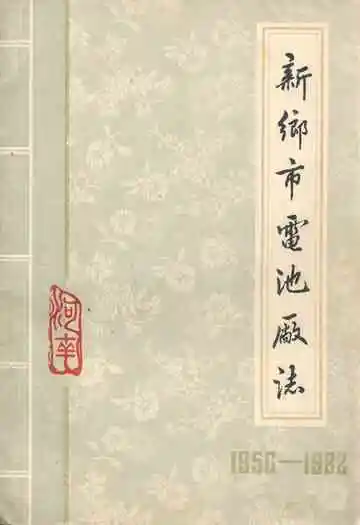 新鄉市電池廠誌
河南
1956—1982